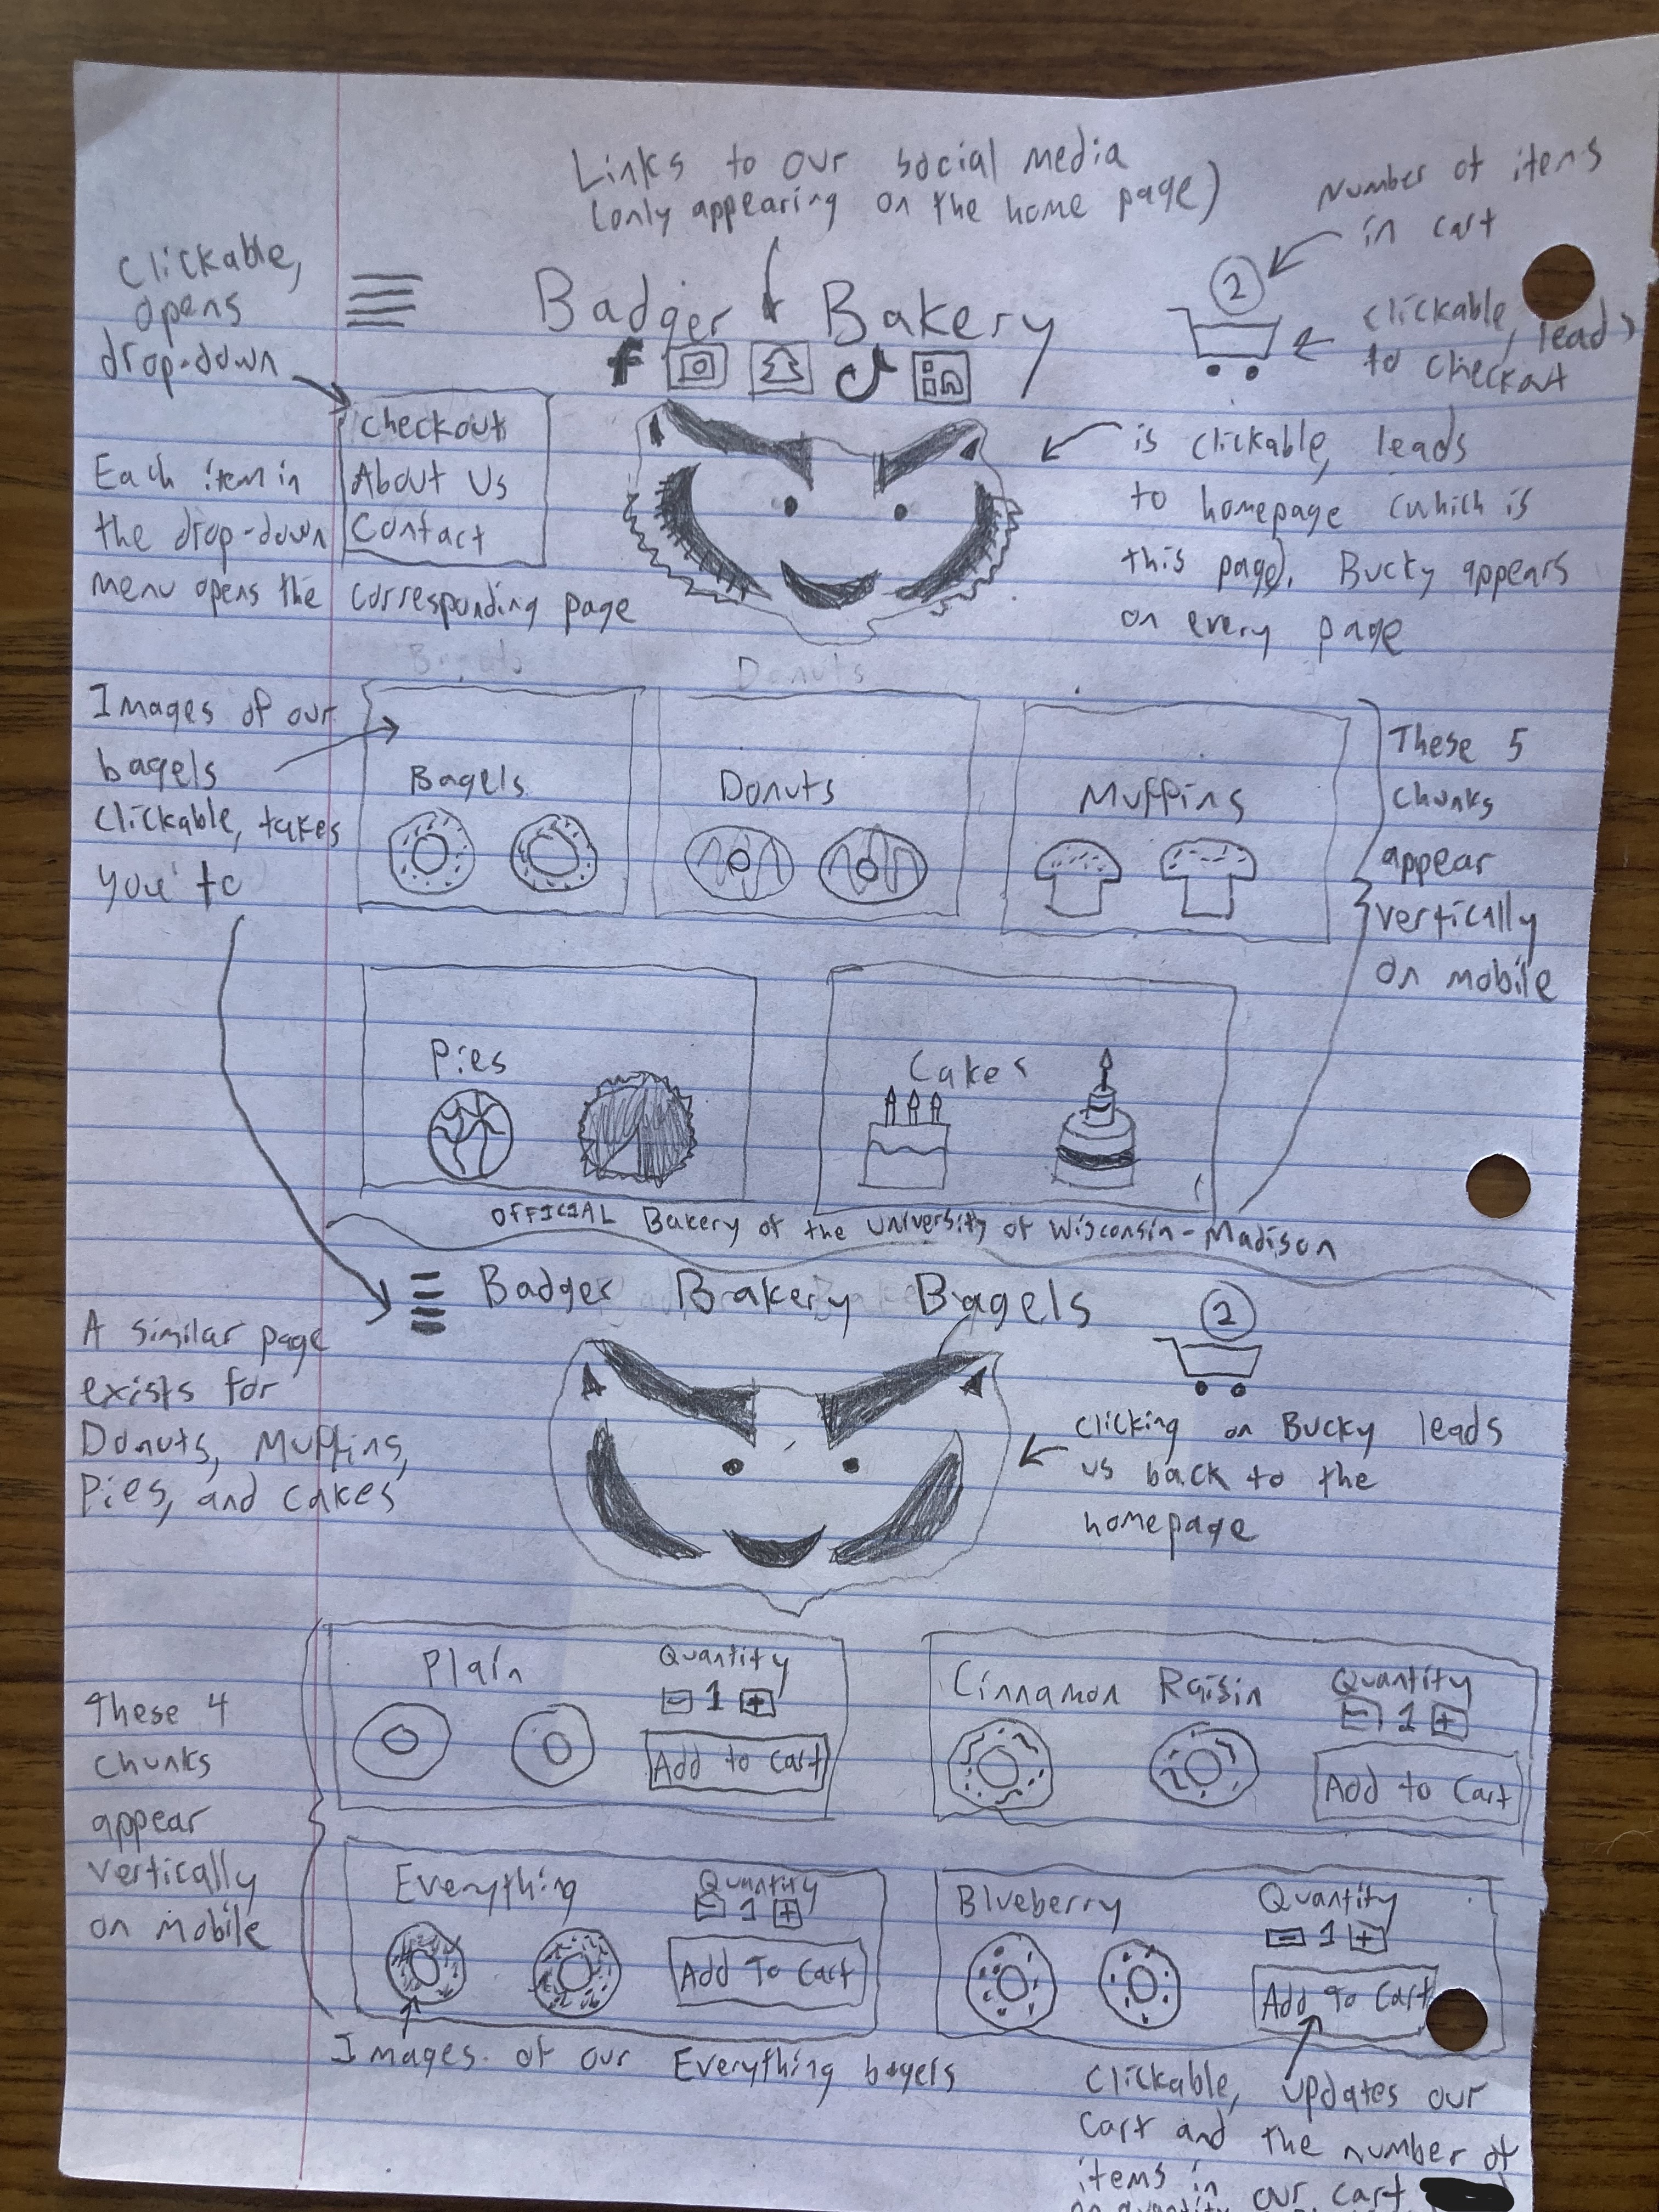 Links to our social media
(only appearing on the home page)
Number of items
in cart
Clickable,
opens
drop-down
Badger Bakery
2
clickable, leads
to checkout
f
in
Checkout
About Us
Contact
Each item in
the drop-down
menu opens the corresponding page
is clickable, leads
to homepage (which is
this page). Bucky appears
on every page
Bagels
Donuts
Images of our
bagels
Clickable, takes
you to
Bagels
Donuts
Muffins
These 5
chunks
appear
vertically
on mobile
Pies
Cakes
OFFICIAL Bakery of the University of Wisconsin-Madison
Badger Bakery Bagels
2
A similar page
exists for
Donuts, Muffins,
Pies, and Cakes
Clicking on Bucky leads
us back to the
homepage
These 4
chunks
appear
vertically
on mobile
Plain
Quantity
- 1 +
Add to Cart
Cinnamon Raisin
Quantity
- 1 +
Add to Cart
Everything
Quantity
- 1 +
Add To Cart
Blueberry
Quantity
- 1 +
Add To Cart
Images of our Everything bagels
Clickable, updates our
cart and the number of
items in our cart
quantity